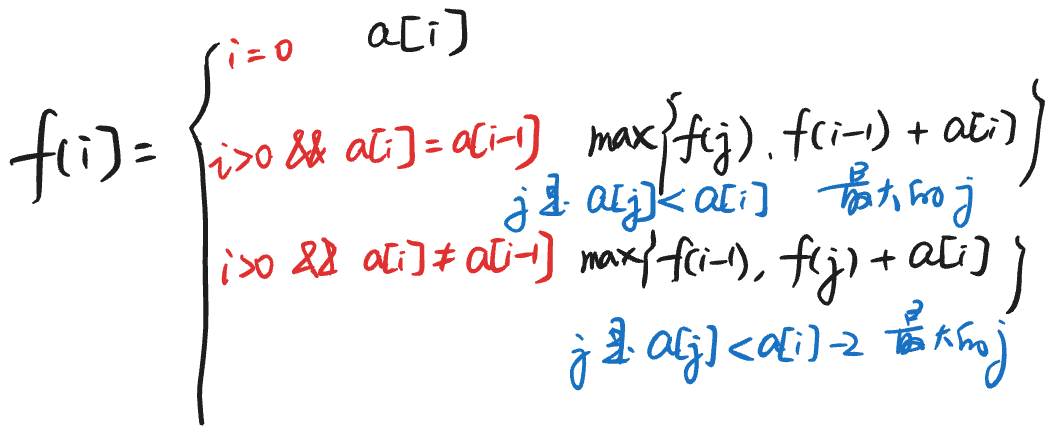 i=0 a[i]
f(i)=
i>0 && a[i]=a[i-1] max{f(j), f(i-1)+a[i]}
j是 a[j]<a[i] 最大的j
i>0 && a[i]≠a[i-1] max{f(i-1), f(j)+a[i]}
j是 a[j]<a[i]-2 最大的j